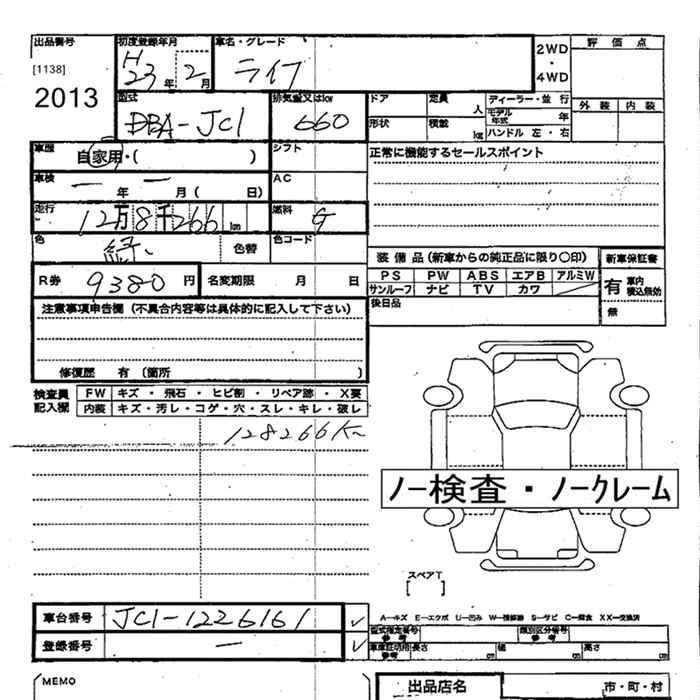 出品番号 初度登録年月 車名・グレード 2WD・4WD 評価点
[1138] H23年 2月 ライフ
2013 外装 内装
型式 排気量又はkw ドア 定員 人 ディーラー・並行
DBA-JC1 660 モデル年式 年
形状 積載 kg ハンドル 左・右
車歴 自家用・( ) シフト 正常に機能するセールスポイント
車検 ー年 ー月 ( 日) AC
走行 12万8千266km 燃料 G
色 緑 色替 色コード
装備品(新車からの純正品に限り〇印) 新車保証書
R券 9380円 名変期限 月 日 PS PW ABS エアB アルミW 有 車内積込無効
サンルーフ ナビ TV カワ
後日品 無
注意事項申告欄(不具合内容等は具体的に記入して下さい)
修復歴 有 〔箇所 〕
検査員記入欄 FW キズ・飛石・ヒビ割・リペア跡・X要
内装 キズ・汚レ・コゲ・穴・スレ・キレ・破レ
128266K
ノー検査・ノークレーム
スペアT
[ ]
車台番号 JC1-1226161 ✓
A-キズ E-エクボ U-凹み W-補修跡 S-サビ C-腐食 XX-交換済
型式指定番号 参考 類別区分番号 参考
登録番号 ー ✓ 車庫証明用 参考 長さ cm 幅 cm 高さ cm
MEMO 出品店名 市・町・村